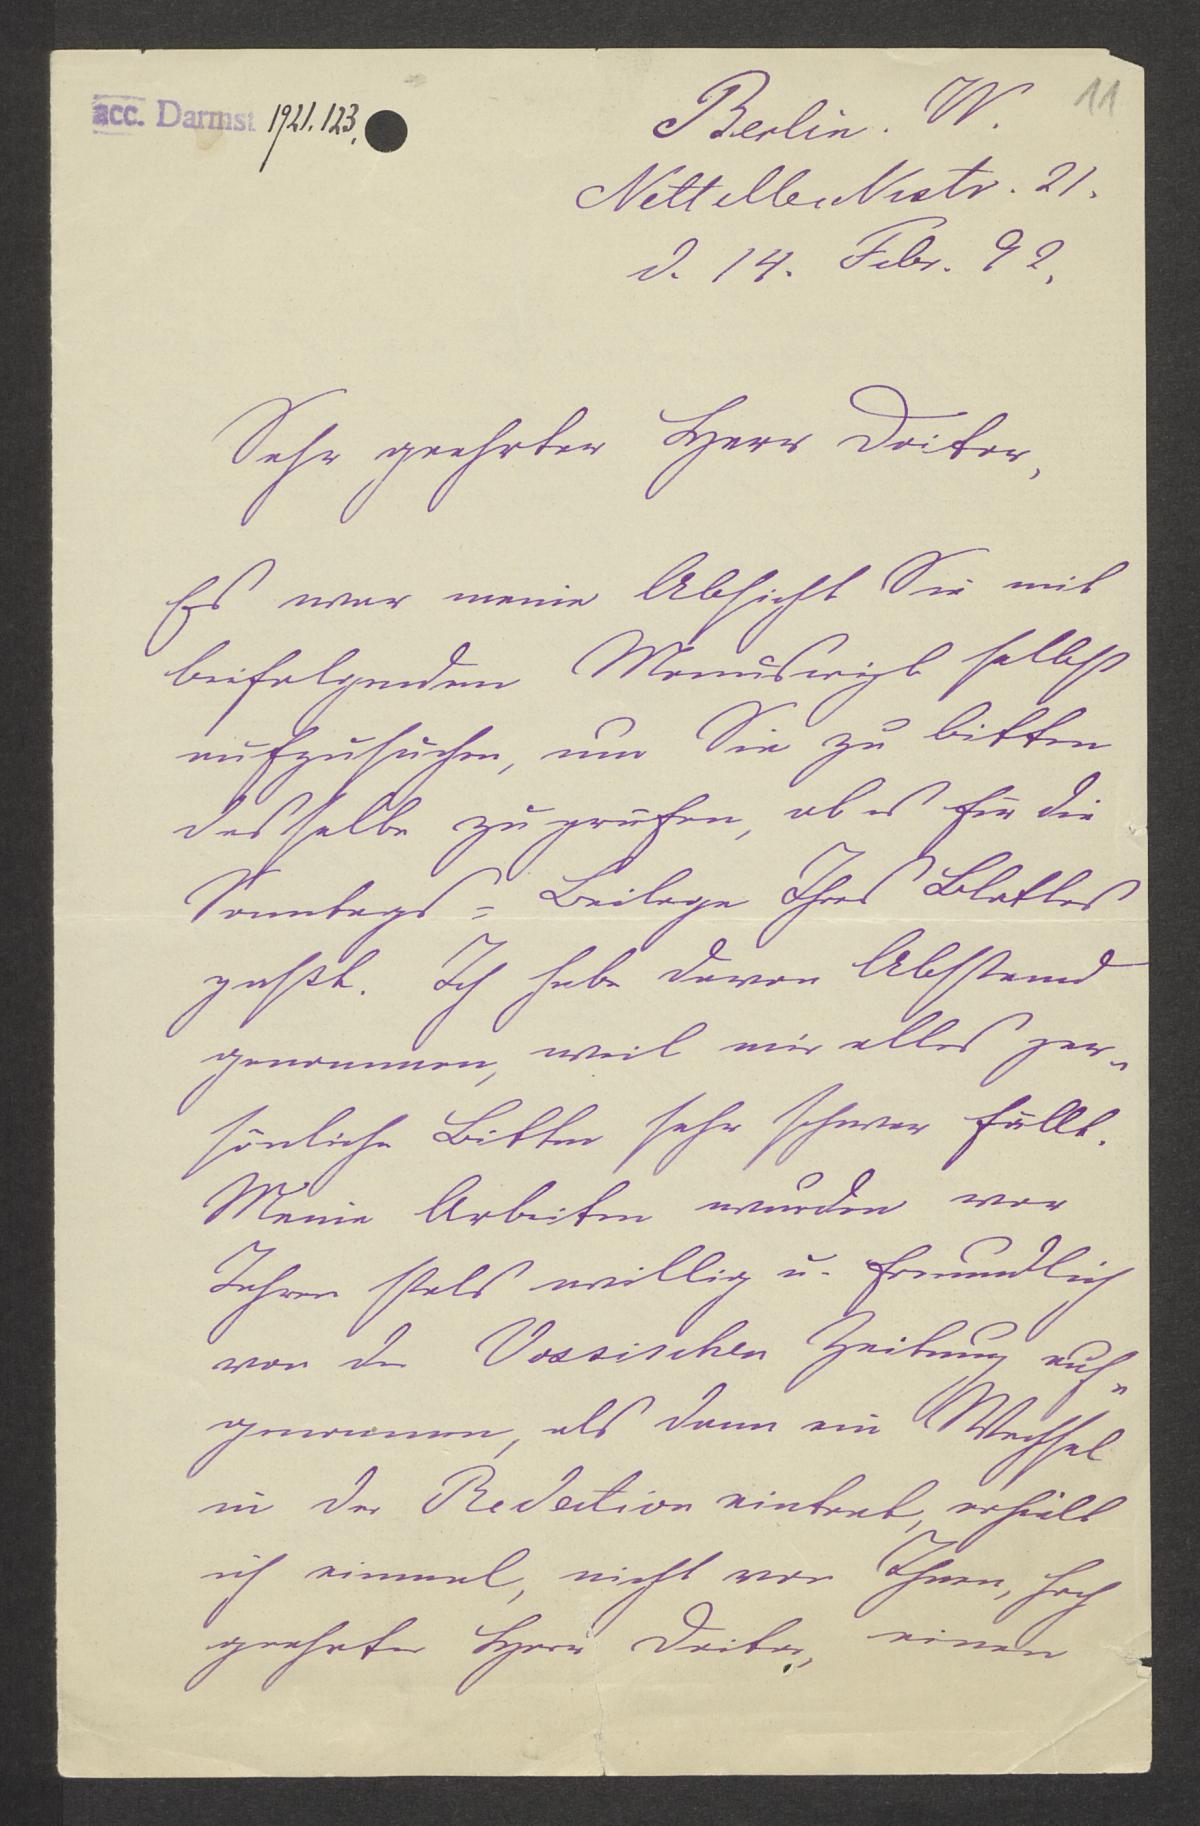 acc. Darmst 1921.123.
11
Berlin. W.
Nettelbeckstr. 21.
d. 14. Febr. 92.
Sehr geehrter Herr Doctor,
Es war meine Absicht Sie mit
beifolgendem Manuscript selbst
aufzusuchen, um Sie zu bitten
dasselbe zu prüfen, ob es für die
Sonntags=Beilage Ihres Blattes
paßt. Ich habe davon Abstand
genommen, weil mir alles per-
sönliche Bitten sehr schwer fällt.
Meine Arbeiten wurden vor
Jahren stets willig u. freundlich
von der Vossischen Zeitung auf-
genommen, als dann ein Wechsel
in der Redaction eintrat, erhielt
ich einmal, nicht von Ihnen, hoch
geehrter Herr Doctor, einen